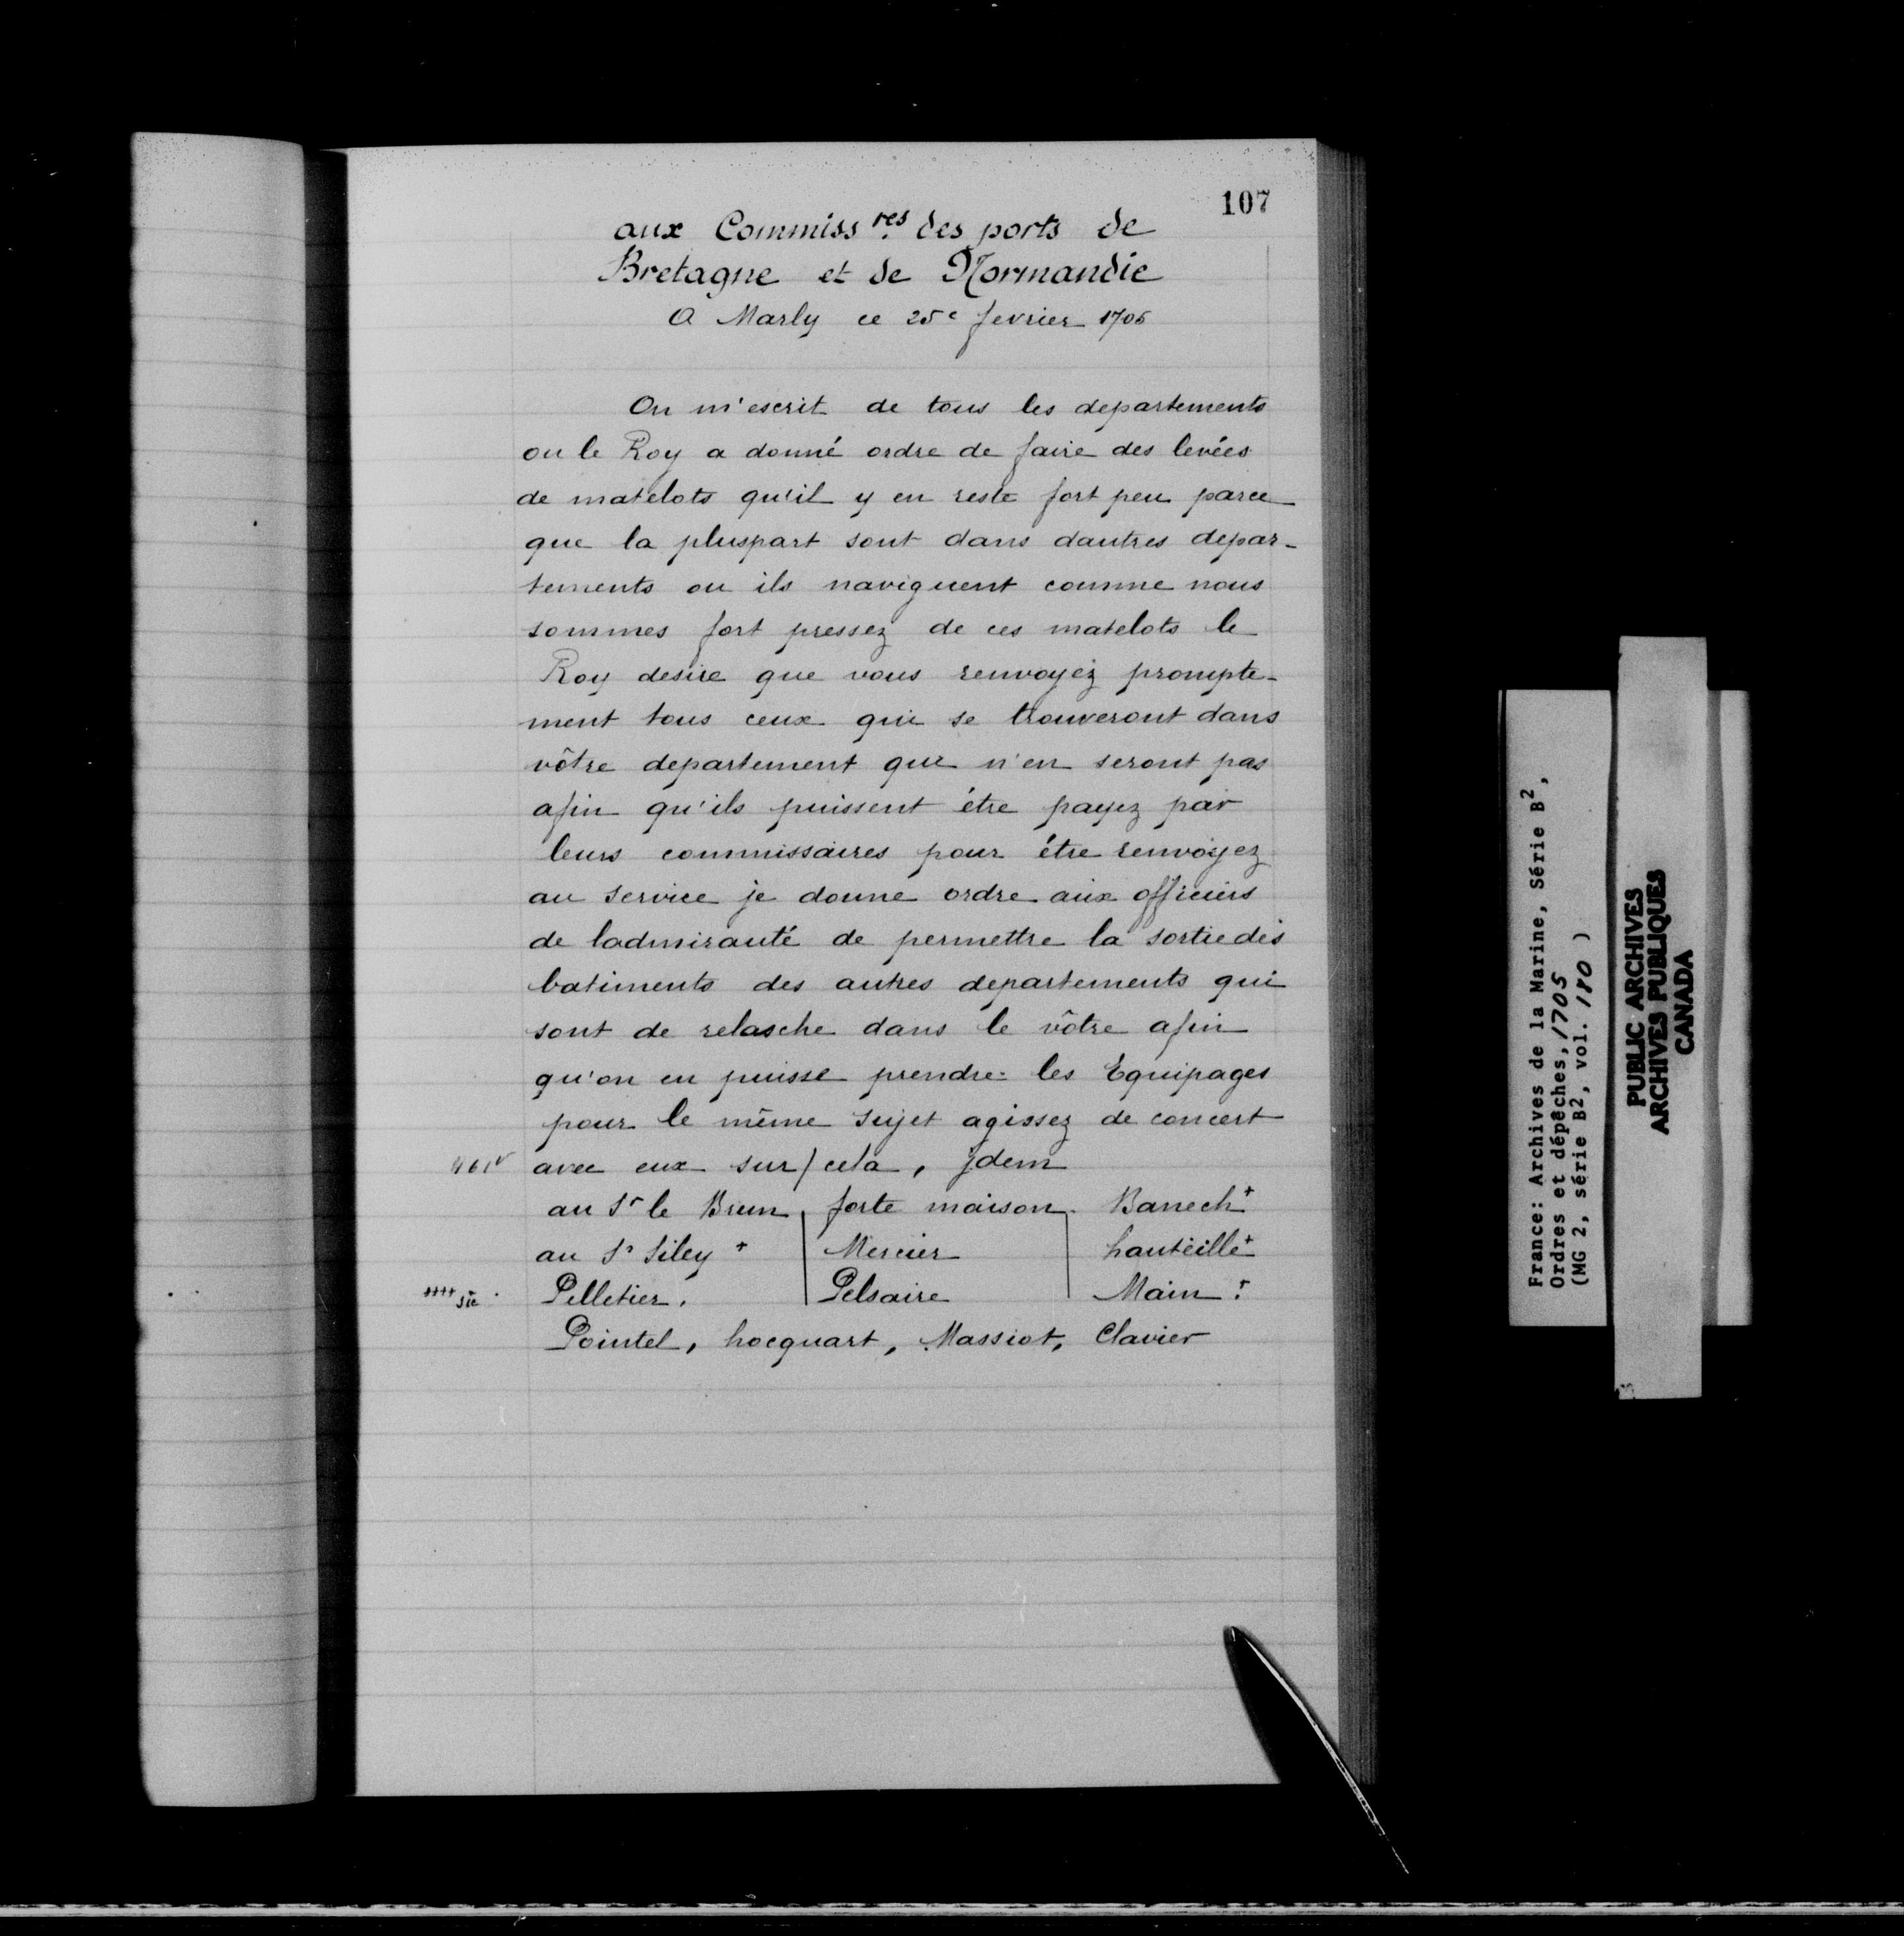 107
aux Commiss.res des ports de
Bretagne et de Normandie
A Marly ce 25e fevrier 1705
On m'escrit de tous les departements
ou le Roy a donné ordre de faire des levées
de matelots qu'il y en reste fort peu parce
que la pluspart sont dans dautres depar-
tements ou ils naviguent comme nous
sommes fort pressez de ces matelots le
Roy desire que vous renvoyéz prompte-
ment tous ceux qui se trouveront dans
vôtre departement que n'en seront pas
afin qu'ils puissent étre payez par
leurs commissaires pour étre renvoyez
au service je donne ordre aux officiers
de ladmirauté de permettre la sortie des
batiments des autres departements qui
sont de relasche dans le vôtre afin
qu'on en puisse prendre les Equipages
pour le même sujet agissez de concert
461v avec eux sur / cela, jdem
au Sr le Brun, forte maison Banech+
au Sr Siley + Mercier hauteille+
++++ sic Pelletier. Pelsaire Main +
Pointel, hocquart, Massiot, Clavier
France: Archives de la Marine, Série B2,
Ordres et dépêches, 1705
(MG 2, série B2, vol. 180 )
PUBLIC ARCHIVES
ARCHIVES PUBLIQUES
CANADA